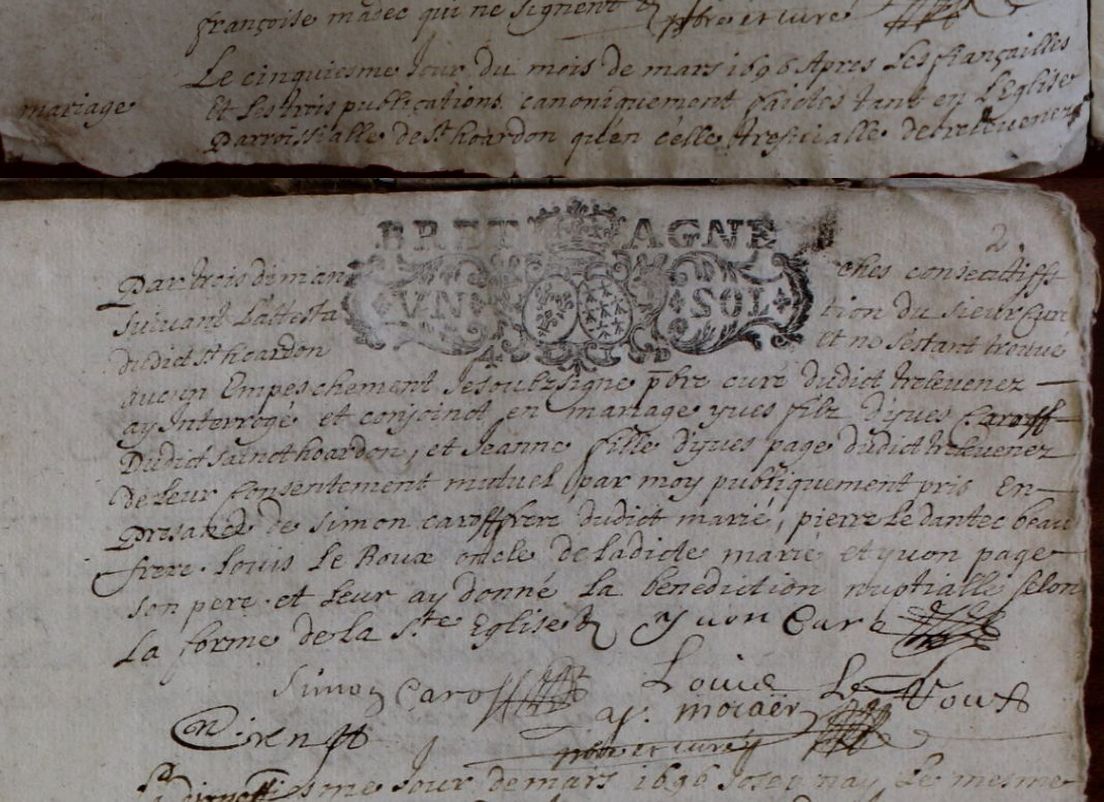 françoise madec qui ne signent &
pbre et curé
mariage
Le cinquiesme Jour du mois de mars 1696 Apres Les fiançailles
Et Les trois publications canoniquement faictes tant en L'Eglise
Parroissialle de St hoardon qu'en celle tresvialle de trelevenez
BRETAGNE
VN SOL
2
Par trois dimanches consecutiffs
suivant L'attestation du sieur Curé
dudict St hoardon et ne s'estant trouvé
aucun Empeschement Je soubzsigne pbre curé dudict trelevenez
ay Interrogé et conjoinct en mariage yves filz d'yves Caroff
Dudict sainct hoardon, et Jeanne fille d'yves page dudict trelevenez
de Leur Consentement mutuel par moy publiquement pris En
Presance de simon caroff frere dudict marié, pierre Le dantec beau
frere. Louis Le Roux oncle de Ladicte marié et yvon page
son pere. et Leur ay donné La benediction nuptialle selon
La forme de la Ste Eglise & Yvon Caro
Simon Caroff Louis Le Roux
y. mocaër
pbre et curé
Jour de mars 1696 Le mesme